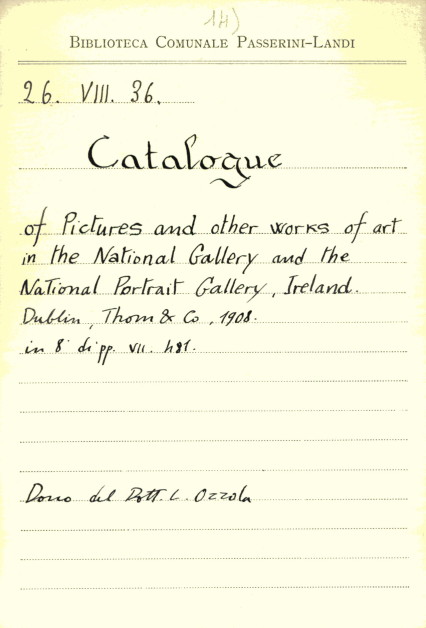 14)
BIBLIOTECA COMUNALE PASSERINI-LANDI
26. VIII. 36.
Catalogue
of Pictures and other works of art
in the National Gallery and the
National Portrait Gallery, Ireland.
Dublin, Thom & Co, 1908.
in 8° di pp. VII. 481.
Dono del Dott. L. Ozzola